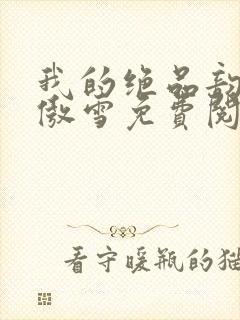 我的绝品
傲雪免费阅
看守暖瓶的猫